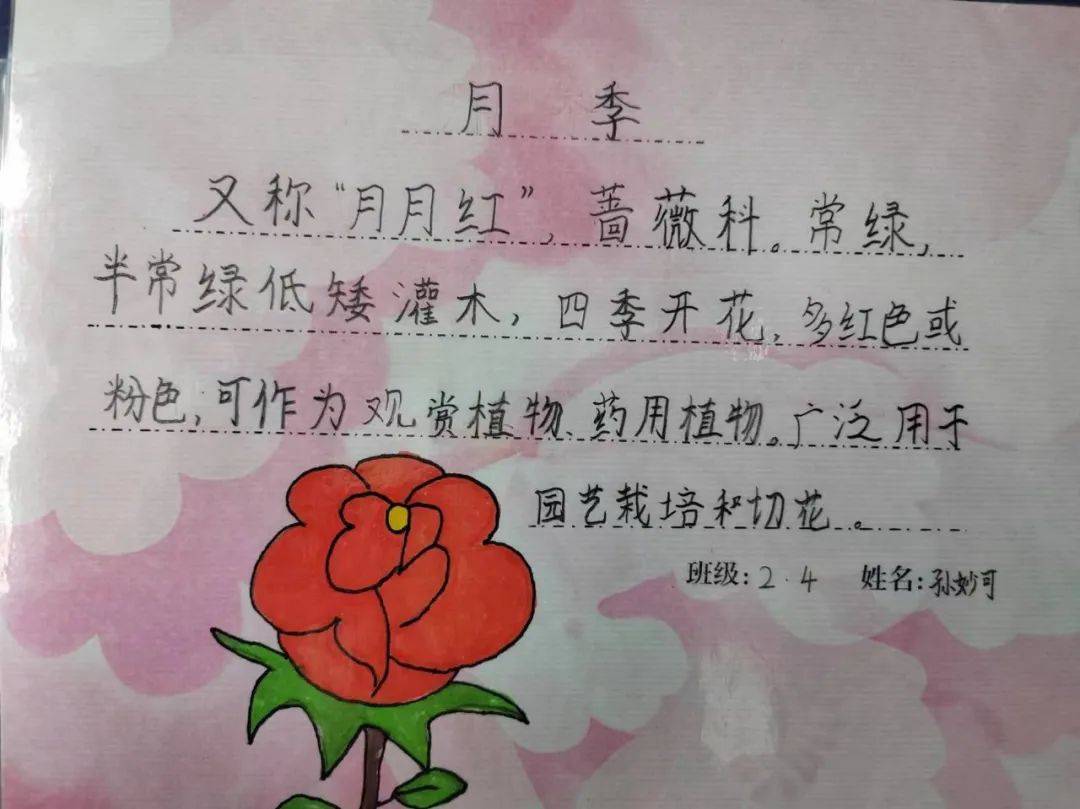 月 季
又称“月月红”，蔷薇科。常绿，
半常绿低矮灌木，四季开花，多红色或
粉色，可作为观赏植物、药用植物。广泛用于
园艺栽培和切花。
班级：2.4 姓名：孙妙可